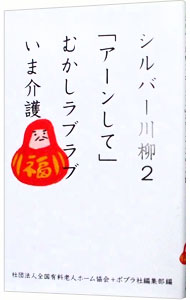 シルバー川柳2
「アーンして」
むかしラブラブ
いま介護
福
社団法人全国有料老人ホーム協会+ポプラ社編集部編